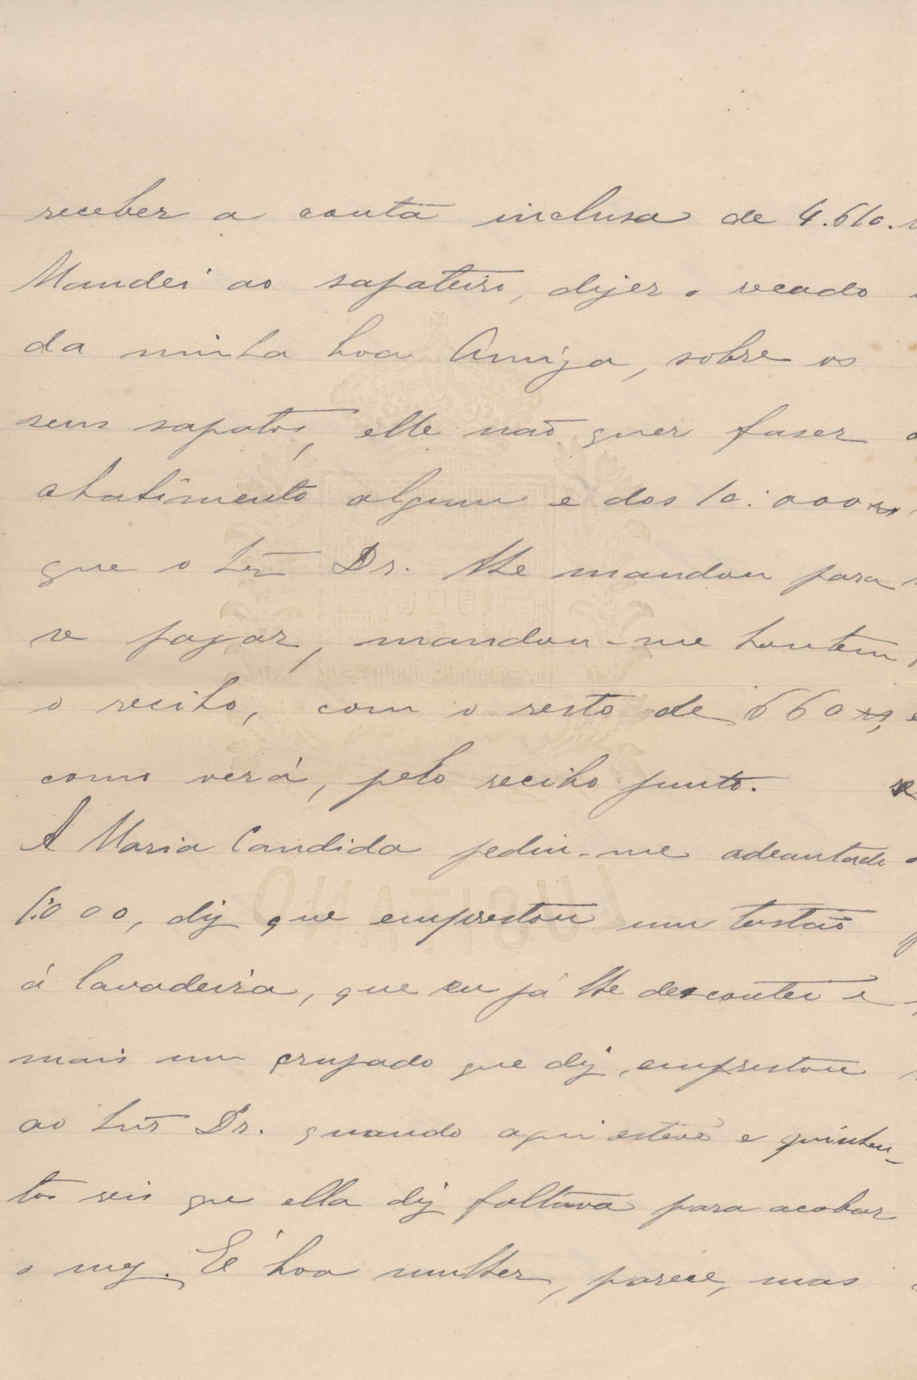 receber a conta inclusa de 4.610.
Mandei ao sapateiro, dizer o recado
da minha boa Amiga, sobre os
seus sapatos, elle não quer faser
abatimento algum e dos 10:000 rs
que o Snr Dr. lhe mandou para
se pagar, mandou-me hontem
o recibo, com o resto de 660 rs,
como verá, pelo recibo junto.
A Maria Candida pediu-me adeantado
1:000, diz que emprestou um tostão
á lavadeira, que eu já lhe descontei e
mais um crusado que diz emprestou
ao Snr Dr. quando aqui esteve e quinhen-
tos reis que ella diz faltava para acabar
o mez. É boa mulher, parece, mas
LUSITANO